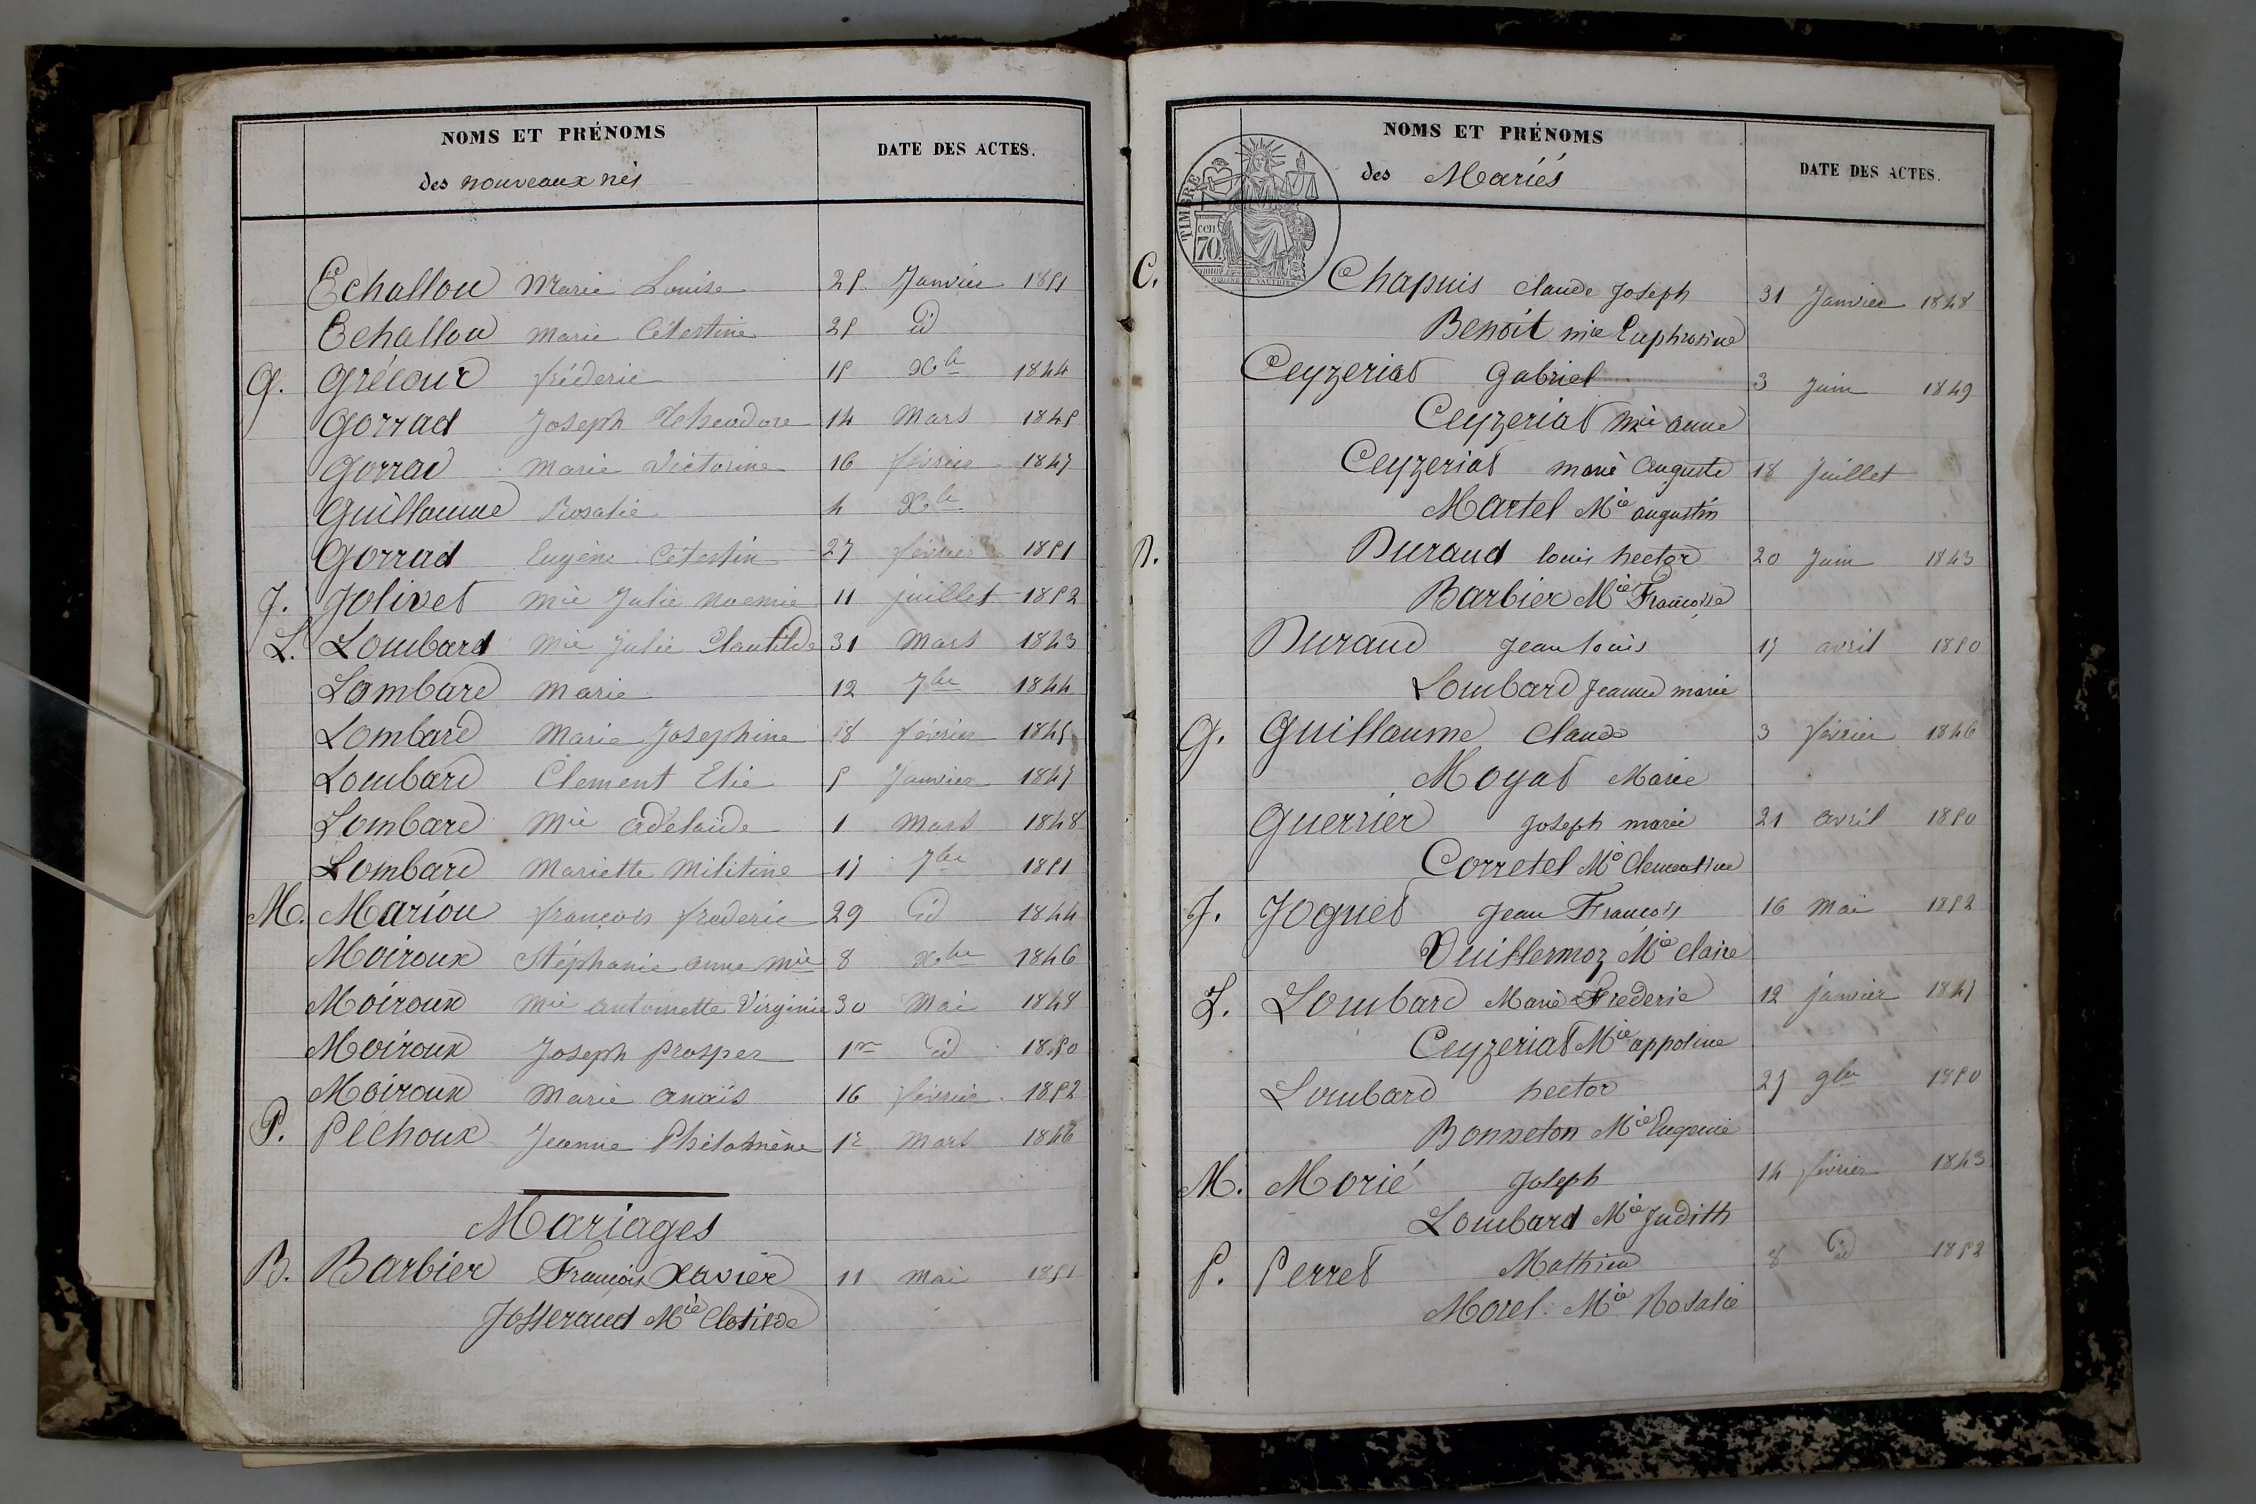 NOMS ET PRÉNOMS
des nouveaux nés
DATE DES ACTES.
Echallou Marie Louise 25 Janvier 1851
Echallou Marie Célestine 25 id
G. Grécour fréderic 15 Xbe 1844
Gorrad Joseph Théodore 14 Mars 1845
Gorrad Marie Victorine 16 février 1847
Guillaume Rosalie 4 Xbe
Gorrad Eugène Célestin 27 février 1851
J. Jolivet Mie Julie Noemie 11 juillet 1852
L. Lombard Mie Julie Clautilde 31 Mars 1843
Lombard Marie 12 7bre 1844
Lombard Marie Josephine 18 février 1845
Lombard Clement Elie 5 Janvier 1847
Lombard Mie adélaide 1 Mars 1848
Lombard Mariette Militine 17 7bre 1851
M. Mariou françois frederic 29 id 1844
Moiroux Stéphanie anne Mie 8 Xbre 1846
Moiroux Mie antoinette Virginie 30 Mai 1848
Moiroux Joseph Prosper 1er id 1850
Moiroux Marie anaïs 16 février 1852
P. Péchoux Jeanne Philomène 1er Mars 1846
Mariages
B. Barbier François Xavier 11 mai 1851
Josserand Mie Clotilde
TIMBRE
cen
70
NOMS ET PRÉNOMS
des Mariés
DATE DES ACTES.
C. Chapuis Claude Joseph 31 Janvier 1848
Benoit Mie Euphrosine
Ceyzeriat Gabriel 3 Juin 1849
Ceyzeriat Mie anne
Ceyzeriat marie Auguste 18 Juillet
Martel Mie augustin
D. Durand louis hector 20 Juin 1843
Barbier Mie Françoise
Durand Jean louis 17 avril 1850
Lombard Jeanne marie
G. Guillaume Claude 3 février 1846
Moyat Marie
Guerrier Joseph marie 21 avril 1850
Corretel Mie Clementine
J. Joguet Jean François 16 Mai 1852
Vuillermoz Mie Claire
L. Lombard Marie Frederic 12 janvier 1847
Ceyzeriat Mie appoline
Lombard hector 27 9bre 1850
Bonneton Mie Eugenie
M. Morié Joseph 14 février 1843
Lombard Mie Judith
P. Perret Mathieu 8 id 1852
Morel Mie Rosalie